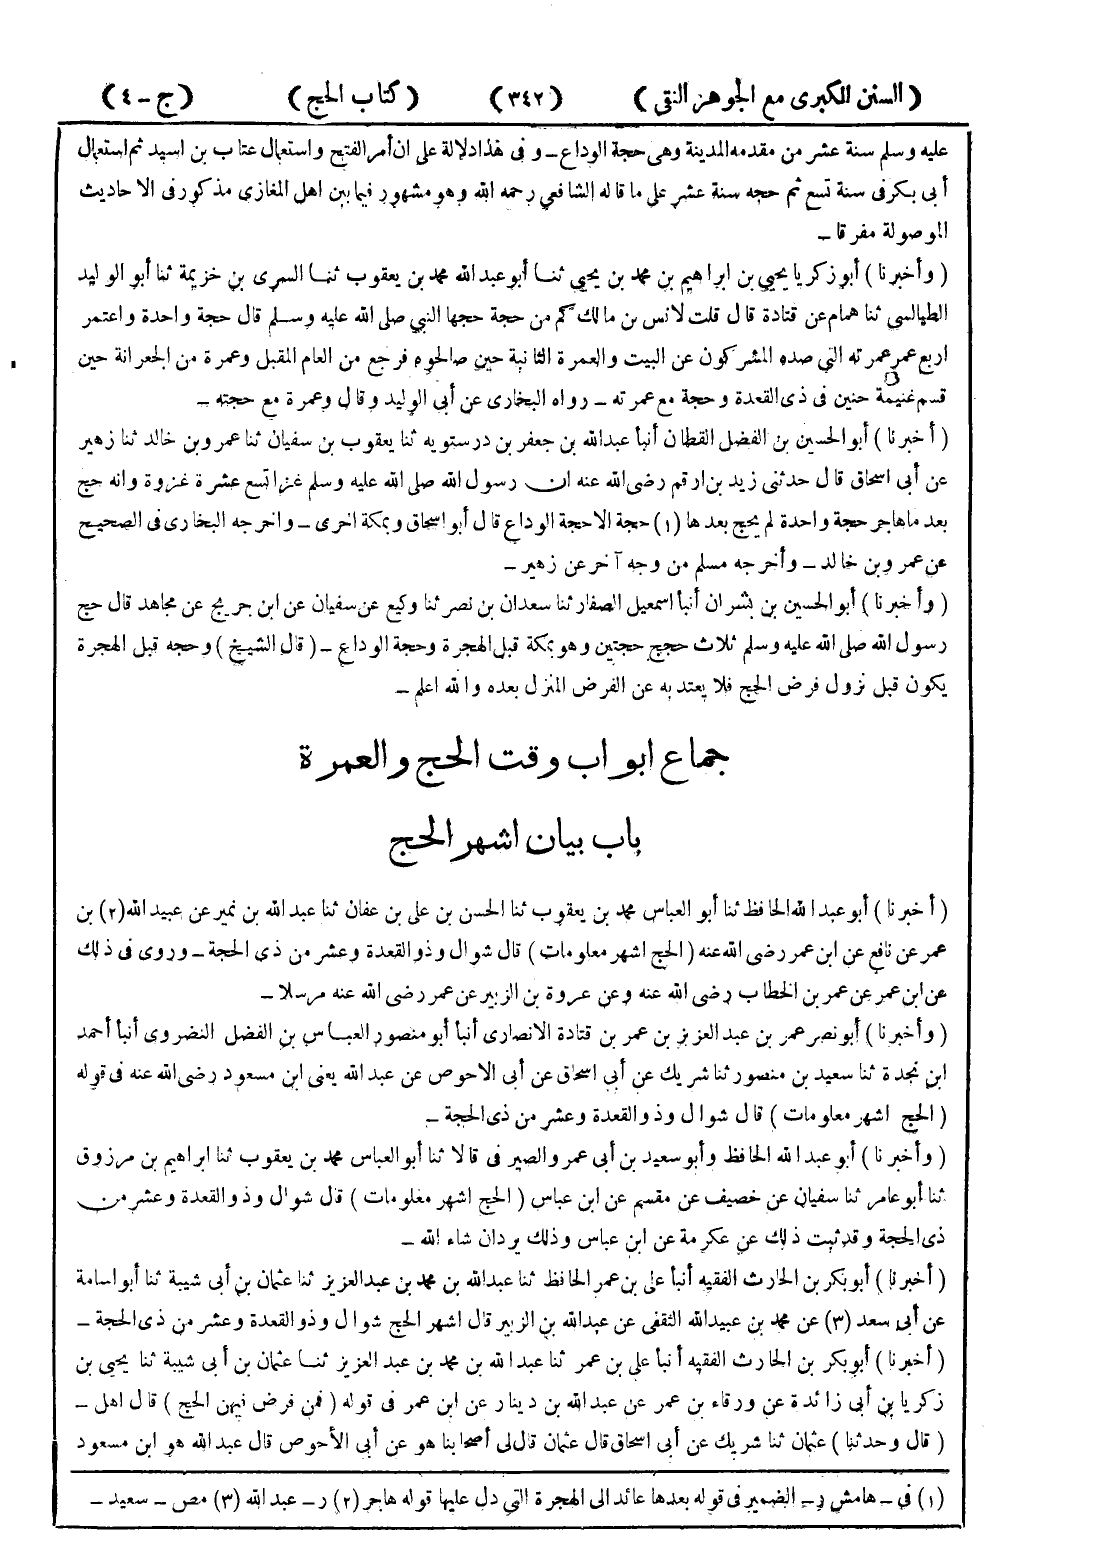 ( السنن الكبرى مع الجوهر النقى ) ( ٣٤٢ ) ( كتاب الحج ) ( ج - ٤ )
عليه وسلم سنة عشر من مقدمه المدينة وهى حجة الوداع - و فى هذا دلالة على ان أمر الفتح واستعمال عتاب بن اسيد ثم استعمال
أبى بكر فى سنة تسع ثم حجه سنة عشر على ما قاله الشافعي رحمه الله وهو مشهور فيما بين اهل المغازى مذكور فى الاحاديث
الموصولة مفرقا -
( وأخبرنا ) أبو زكريا يحيى بن ابراهيم بن محمد بن يحيى ثنا أبو عبد الله محمد بن يعقوب ثنا السرى بن خزيمة ثنا أبو الوليد
الطيالسي ثنا همام عن قتادة قال قلت لانس بن مالك كم من حجة حجها النبي صلى الله عليه وسلم قال حجة واحدة واعتمر
اربع عمر عمرته التي صده المشركون عن البيت والعمرة الثانية حين صالحوه فرجع من العام المقبل وعمرة من الجعرانة حين
قسم غنيمة حنين فى ذى القعدة وحجة مع عمرته - رواه البخارى عن أبى الوليد وقال وعمرة مع حجته -
( أخبرنا ) أبو الحسين بن الفضل القطان أنبأ عبد الله بن جعفر بن درستويه ثنا يعقوب بن سفيان ثنا عمرو بن خالد ثنا زهير
عن أبى اسحاق قال حدثنى زيد بن ارقم رضى الله عنه ان رسول الله صلى الله عليه وسلم غزا تسع عشرة غزوة وانه حج
بعد ما هاجر حجة واحدة لم يحج بعدها (١) حجة الا حجة الوداع قال أبو اسحاق وبمكة اخرى - واخرجه البخارى فى الصحيح
عن عمرو بن خالد - وأخرجه مسلم من وجه آخر عن زهير -
( وأخبرنا ) أبو الحسين بن بشران أنبأ اسمعيل الصفار ثنا سعدان بن نصر ثنا وكيع عن سفيان عن ابن جريج عن مجاهد قال حج
رسول الله صلى الله عليه وسلم ثلاث حجج حجتين وهو بمكة قبل الهجرة وحجة الوداع - ( قال الشيخ ) وحجه قبل الهجرة
يكون قبل نزول فرض الحج فلا يعتد به عن الفرض المنزل بعده والله اعلم -
جماع ابواب وقت الحج والعمرة
باب بيان اشهر الحج
( أخبرنا ) أبو عبد الله الحافظ ثنا أبو العباس محمد بن يعقوب ثنا الحسن بن على بن عفان ثنا عبد الله بن نمير عن عبيد الله (٢) بن
عمر عن نافع عن ابن عمر رضى الله عنه ( الحج اشهر معلومات ) قال شوال وذو القعدة وعشر من ذى الحجة - وروى فى ذلك
عن ابن عمر عن عمر بن الخطاب رضى الله عنه وعن عروة بن الزبير عن عمر رضى الله عنه مرسلا -
( وأخبرنا ) أبو نصر عمر بن عبد العزيز بن عمر بن قتادة الانصارى أنبأ أبو منصور العباس بن الفضل النضروى أنبأ أحمد
ابن نجدة ثنا سعيد بن منصور ثنا شريك عن أبى اسحاق عن أبى الاحوص عن عبد الله يعنى ابن مسعود رضى الله عنه فى قوله
( الحج اشهر معلومات ) قال شوال وذو القعدة وعشر من ذى الحجة -
( وأخبرنا ) أبو عبد الله الحافظ وأبو سعيد بن أبى عمرو الصيرفى قالا ثنا أبو العباس محمد بن يعقوب ثنا ابراهيم بن مرزوق
ثنا أبو عامر ثنا سفيان عن خصيف عن مقسم عن ابن عباس ( الحج اشهر معلومات ) قال شوال وذو القعدة وعشر من
ذى الحجة وقد ثبت ذلك عن عكرمة عن ابن عباس وذلك يرد ان شاء الله -
( أخبرنا ) أبو بكر بن الحارث الفقيه أنبأ على بن عمر الحافظ ثنا عبد الله بن محمد بن عبد العزيز ثنا عثمان بن أبى شيبة ثنا أبو اسامة
عن أبى سعد (٣) عن محمد بن عبيد الله الثقفى عن عبد الله بن الزبير قال اشهر الحج شوال وذو القعدة وعشر من ذى الحجة -
( أخبرنا ) أبو بكر بن الحارث الفقيه أنبأ على بن عمر ثنا عبد الله بن محمد بن عبد العزيز ثنا عثمان بن أبى شيبة ثنا يحيى بن
زكريا بن أبى زائدة عن ورقاء بن عمر عن عبد الله بن دينار عن ابن عمر فى قوله ( فمن فرض فيهن الحج ) قال اهل -
( قال وحدثنا ) عثمان ثنا شريك عن أبى اسحاق قال عثمان قال لى أصحابنا هو عن أبى الأحوص قال عبد الله هو ابن مسعود
(١) فى - هامش ر - الضمير فى قوله بعدها عائد الى الهجرة التي دل عليها قوله هاجر (٢) ر - عبد الله (٣) مص - سعيد -